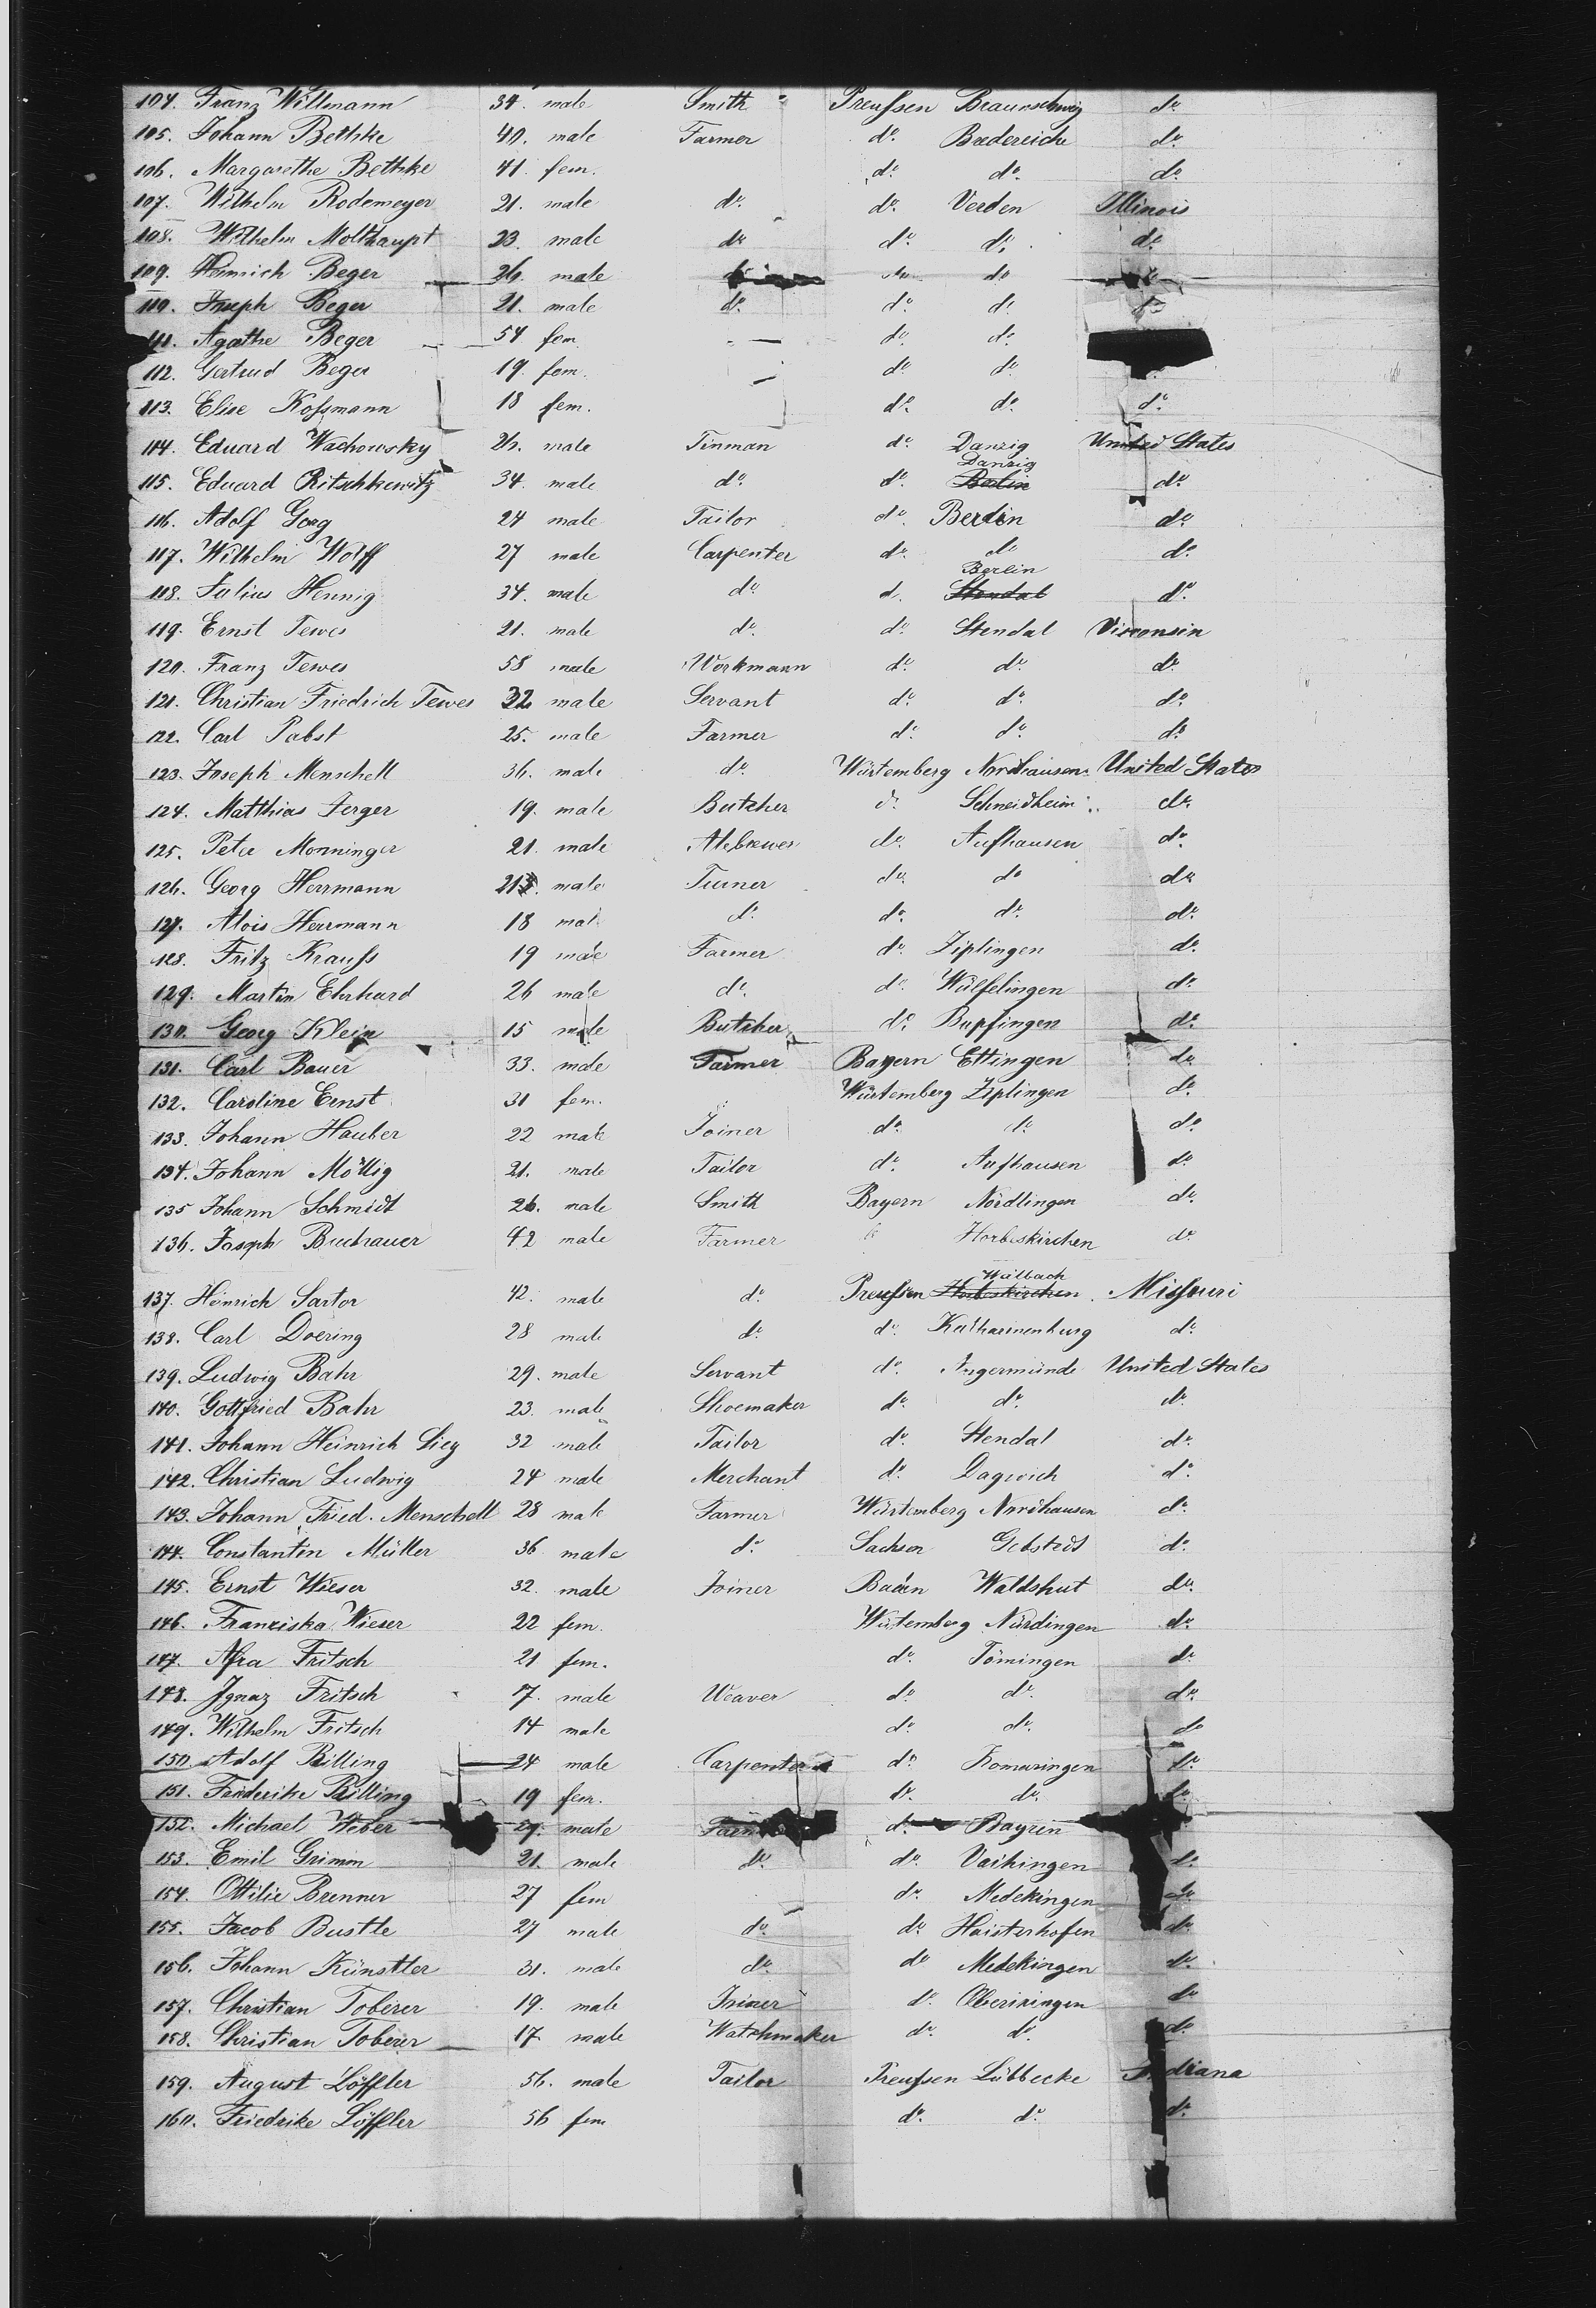 104. Franz Willmann 34. male Smith Preußen Braunschweig do
105. Johann Bethke 40. male Farmer do. Bredereiche do.
106. Margarethe Bethke 41. fem. do. do. do.
107. Wilhelm Rodemeyer 21. male do. do. Verden Illinois
108. Wilhelm Molthaupt 23. male do do. do. do.
109. Heinrich Beger 26. male do do
110. Joseph Beger 21. male do. do. do. do
111. Agathe Beger 54 fem do. do.
112. Gertrud Beger 19. fem. do do.
113. Elise Koßmann 18 fem. do. do. do.
114. Eduard Wachowsky 26. male Tinman do Danzig United States
Danzig
115. Eduard Ritschkewitz 34. male do. do. Berlin do.
116. Adolf Georg 24 male Tailor do. Berlin do.
117. Wilhelm Wolff 27 male Carpenter do. do do.
Berlin
118. Julius Hennig 34. male do. d. Stendal do.
119. Ernst Tewes 21. male do. do. Stendal Visconsin
120. Franz Tewes 58 male Workmann do. do. do.
121. Christian Friedrich Tewes 32 male Servant do. do. do.
122. Carl Pabst 25. male Farmer do. do. do.
123. Joseph Menschell 36. male do. Würtemberg Nordhausen United States
124. Matthias Jerger 19. male Butcher do. Schneidheim do.
125. Peter Monninger 21. male Alebrewer do. Aufhausen do.
126. Georg Herrmann 21. male Turner do. do do
127. Alois Herrmann 18 male do. do. do. do.
128. Fritz Krauß 19 male Farmer do. Ziplingen do.
129. Martin Ehrhard 26 male do. do. Wülfelingen do.
130. Georg Klein 15 male Butcher do. Bupfingen do.
131. Carl Bauer 33. male Farmer Bayern Ettingen do
132. Caroline Ernst 31 fem. Würtemberg Ziplingen do.
133. Johann Hauber 22 male Joiner do. do do.
134. Johann Möllig 21. male Tailor do. Aufhausen do.
135 Johann Schmidt 26. male Smith Bayern Nördlingen do.
136. Joseph Buchauer 42 male Farmer do Horbeskirchen do.
Wülbach
137. Heinrich Sartor 42. male do. Preußen Horbeskirchen Mißouri
138. Carl Doering 28 male do. do. Katharinenburg do.
139. Ludwig Bahr 29. male Servant do. Angermünde United States
140. Gottfried Bahr 23. male Shoemaker do. do. do.
141. Johann Heinrich Sieg 32 male Tailor do. Stendal do.
142. Christian Ludwig 24 male Merchant do. Dagwich do.
143. Johann Fried. Menschell 28 male Farmer Würtemberg Nordhausen do.
144. Constantin Müller 36 male do. Sachsen Gebstedt do.
145. Ernst Wieser 32. male Joiner Baden Waldshut do.
146. Franziska Wieser 22 fem. Würtemberg Nürdingen do.
147. Afra Fritsch 21 fem. do. Tömingen do.
148. Ignaz Fritsch 17. male Weaver do. do. do.
149. Wilhelm Fritsch 14 male do. do. do
150. Adolf Billing 24 male Carpenter do. Homaringen do.
151. Friederike Billing 19 fem. do. do. do.
152. Michael Weber 29. male do. Bayren
153. Emil Grimm 21. male do. do. Vaihingen do.
154. Ottilie Brenner 27 fem do. Medekingen do
155. Jacob Bustle 27 male do. do. Haisterhofen do.
156. Johann Künstler 31. male do. do Medekingen do.
157. Christian Toberer 19. male Joiner do. Oberiningen do
158. Christian Toberer 17 male Watchmaker do. do. do.
159. August Löffler 56. male Tailor Preußen Lübbecke Indiana
160. Friedrike Löffler 56 fem do. do. do.